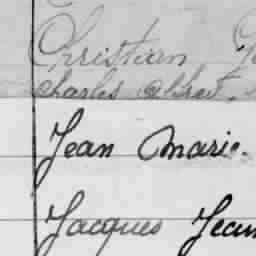 Christian
Charles Albert
Jean Marie.
Jacques Jean